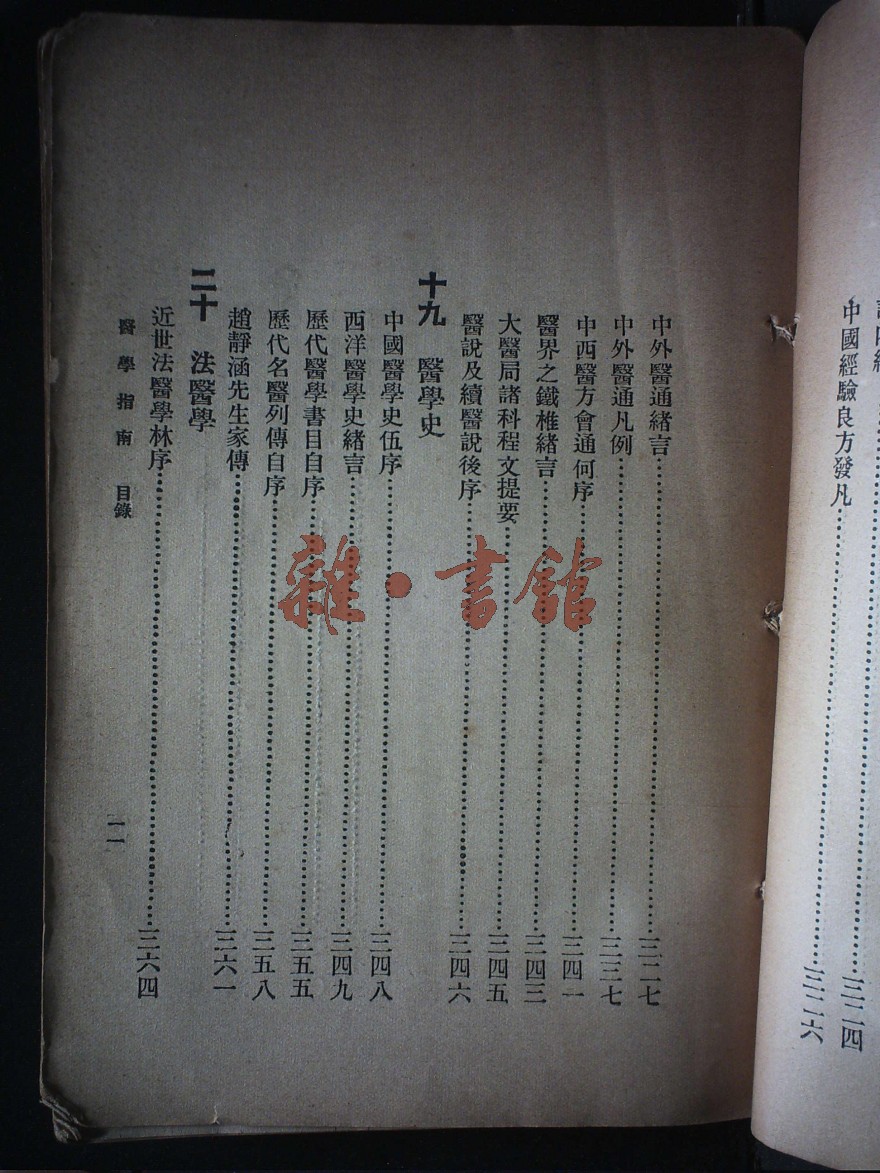 三二四
中國經驗良方發凡……三二六
中外醫通緒言……三二七
中外醫通凡例……三三七
中西醫方會通何序……三四一
醫界之鐵椎緒言……三四三
大醫局諸科程文提要……三四五
醫說及續醫說後序……三四六
十九 醫學史
中國醫學史伍序……三四八
西洋醫學史緒言……三四九
歷代醫學書目自序……三五五
歷代名醫列傳自序……三五八
趙靜涵先生家傳……三六一
二十 法醫學
近世法醫學林序……三六四
醫學指南 目錄 一一
雜·書館